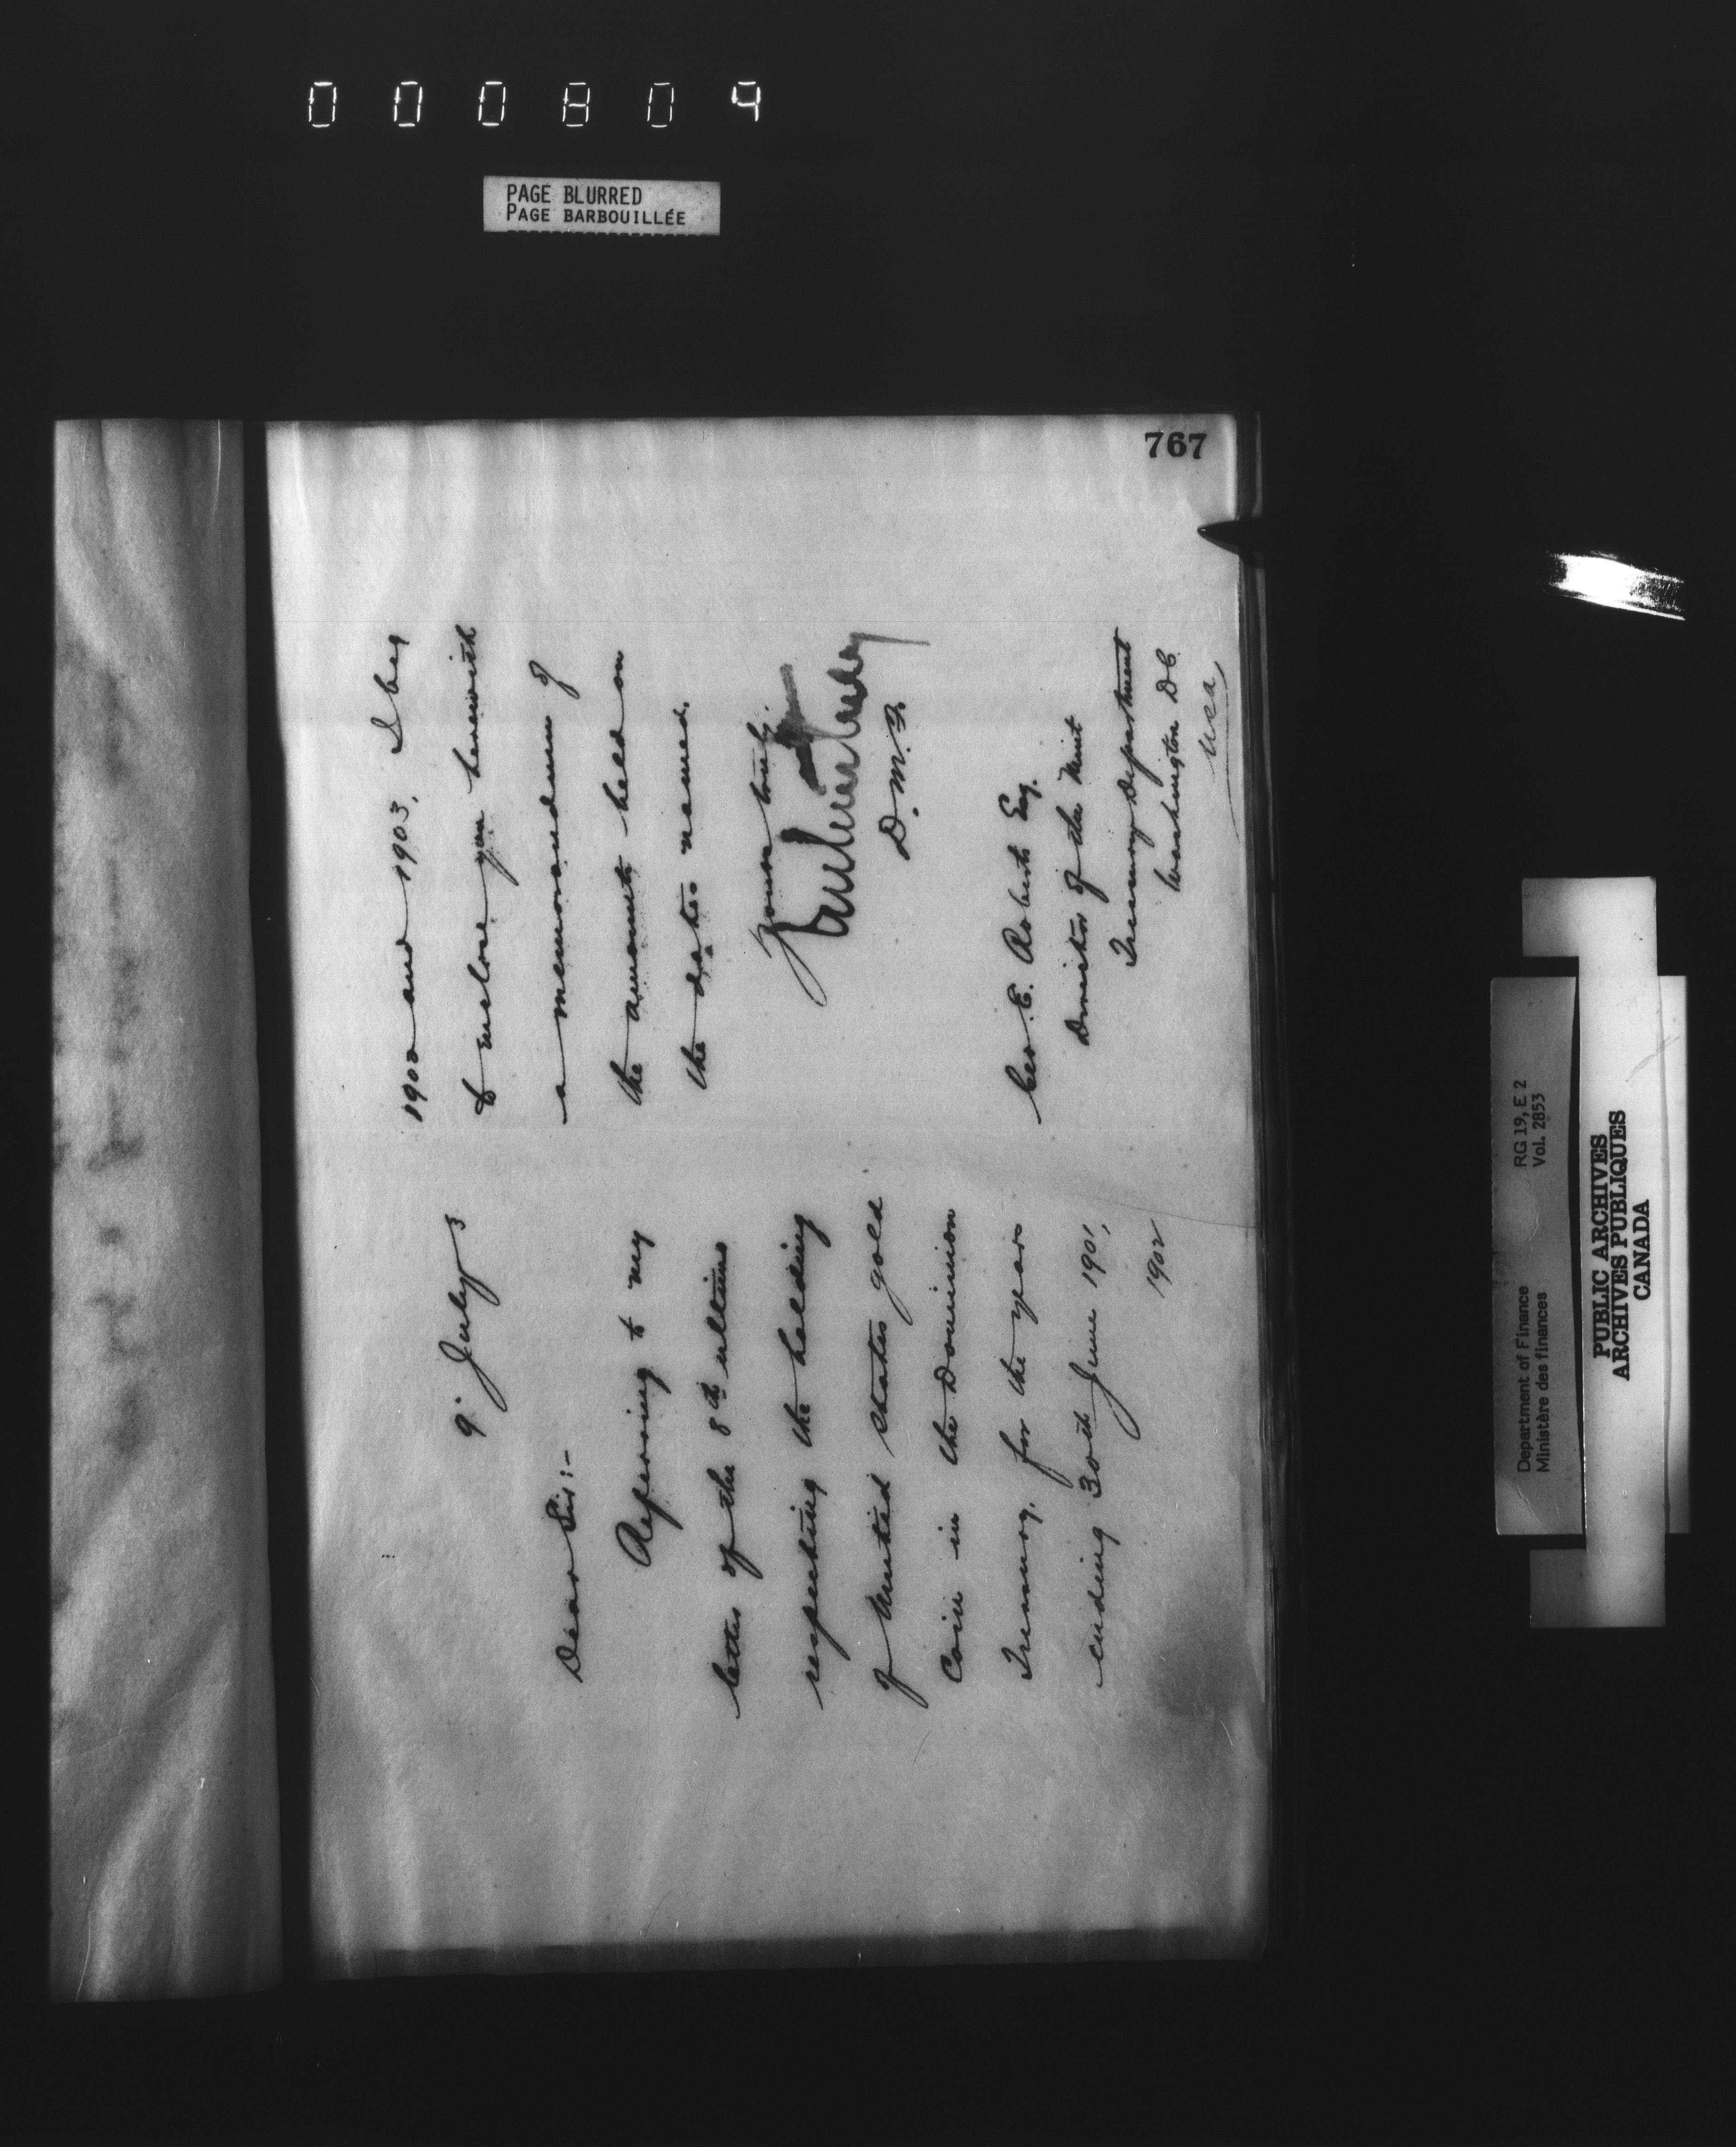 000804
PAGE BLURRED
PAGE BARBOUILLÉE
767
9" July 3
Dear Sir:-
Referring to my
letter of the 8th ultimo
respecting the holding
of United States gold
Coin in the Dominion
Treasury, for the years
ending 30th June 1901,
1902
1902 and 1903, I beg
to enclose you herewith
a memorandum of
the amounts held on
the dates named.
Yours truly.
D.M.F.
Geo. E. Roberts Esq.
Director of the Mint
Treasury Department
Washington DC
USA
Department of Finance
Ministère des finances
RG 19, E 2
Vol. 2853
PUBLIC ARCHIVES
ARCHIVES PUBLIQUES
CANADA